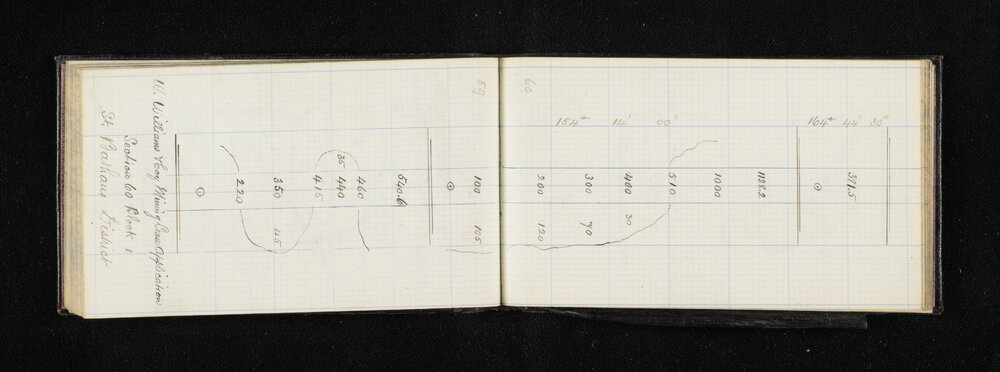 W. Williams & Coy Mining Lease Application
Section 60 Block 1
St Bathans District
220
350 45
415
35 440
460
540.6
59
100 105
60
200 120
154° 14' 00"
300 90
400 30
510
1000
1128.2
164° 44' 30"
371.5